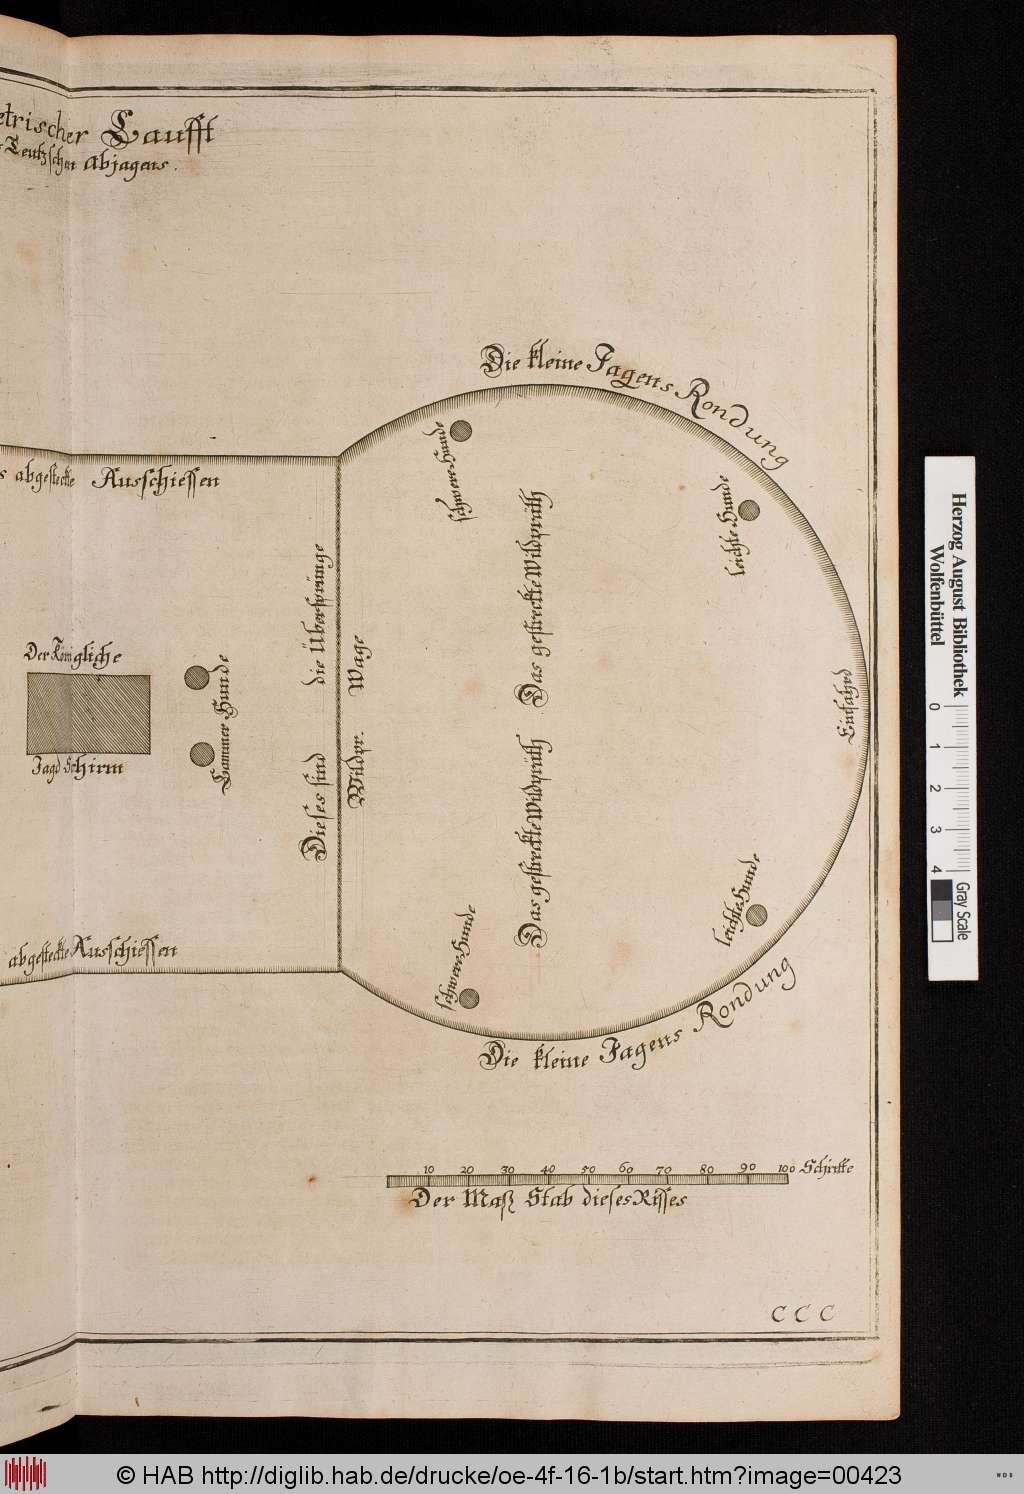 etrischer Laufft
s Teutzschen abjagens.
Die kleine Jagens Rondung
s abgesteckte Ausschiessen
schwere Hunde
leichte Hunde
Das gestreckte Wildpräth
Das gestreckte Wildpräth
Dieses sind die Übersprünge
Wildpr. Wage
Der Königliche
Jagd Schirm
Cammer Hunde
abgesteckte Ausschiessen
schwere Hunde
leichte Hunde
Die kleine Jagens Rondung
10 20 30 40 50 60 70 80 90 100 Schritte
Der Maß Stab dieses Risses
C C C
Herzog August Bibliothek
Wolfenbüttel
0 1 2 3 4
Gray Scale
© HAB http://diglib.hab.de/drucke/oe-4f-16-1b/start.htm?image=00423